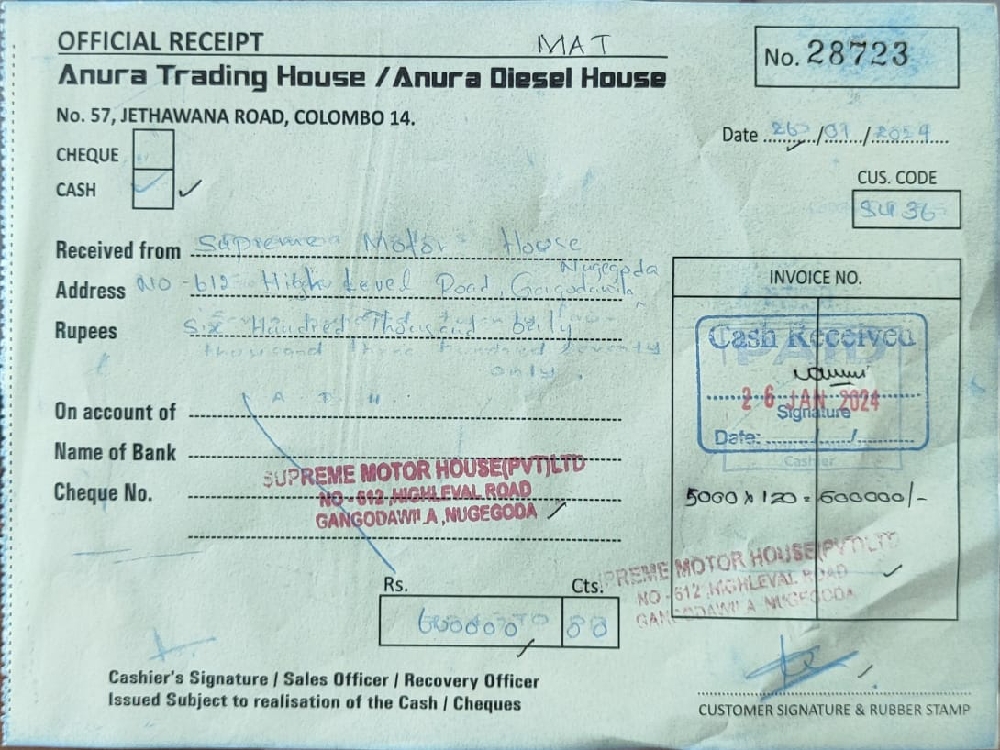 OFFICIAL RECEIPT
MAT
No. 28723
Anura Trading House / Anura Diesel House
No. 57, JETHAWANA ROAD, COLOMBO 14.
Date 26/01/2024
CHEQUE
CASH ✓
CUS. CODE
SU 36
Received from Supreme Motor House
Address NO-612 High Level Road, Gangodawila
Nugegoda
Rupees Six Hundred Thousand Only
thousand three hundred seventy
only.
INVOICE NO.
Cash Received
PAID
26 JAN 2024
Signature
Date:
Cashier
5000 x 120 = 600000/-
On account of
Name of Bank
Cheque No.
SUPREME MOTOR HOUSE(PVT)LTD
NO - 612 .HIGHLEVAL ROAD
GANGODAWILA ,NUGEGODA
PREME MOTOR HOUSE(PVT)LTD
NO - 612 .HIGHLEVAL ROAD
GANGODAWILA NUGEGODA
Rs.
Cts.
600000
00
Cashier's Signature / Sales Officer / Recovery Officer
Issued Subject to realisation of the Cash / Cheques
CUSTOMER SIGNATURE & RUBBER STAMP